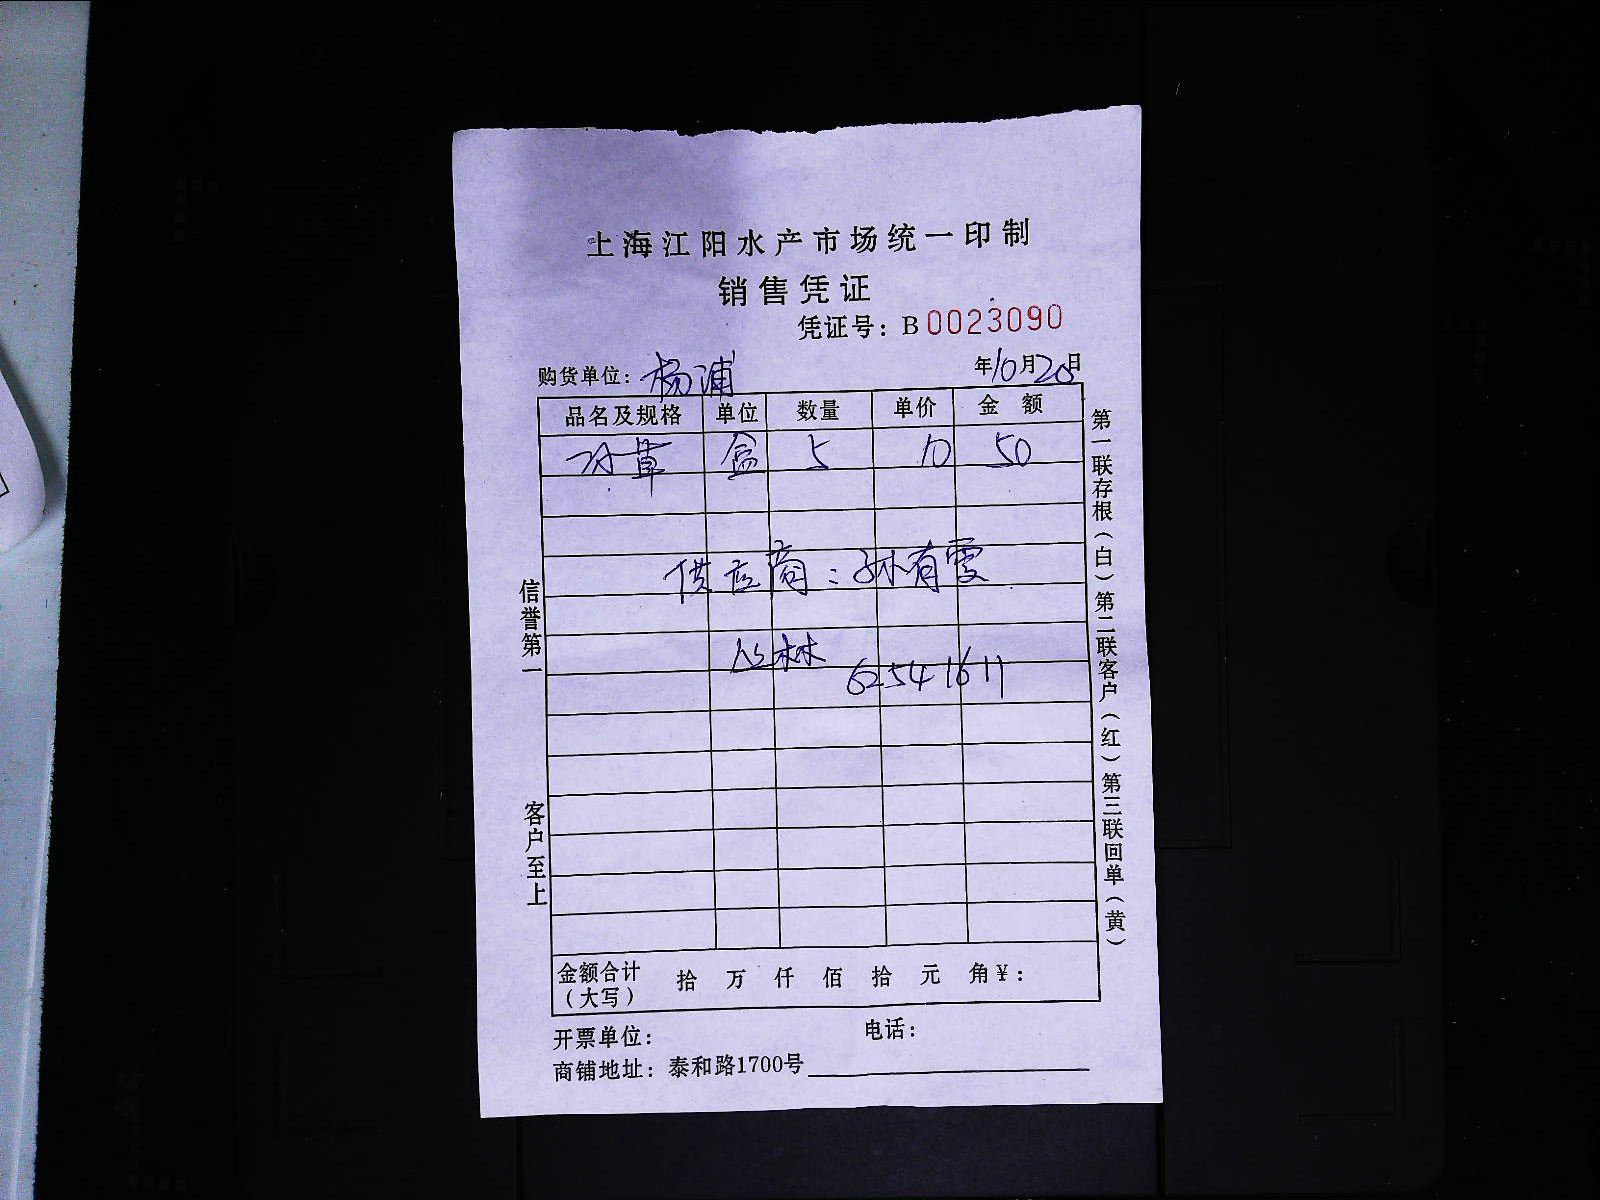 上海江阳水产市场统一印制
销售凭证
凭证号：B0023090
购货单位：杨浦 年10月20日
品名及规格 单位 数量 单价 金额
盒 5 10 50
供应商：孙有雯
丛林
62541611
金额合计（大写） 拾 万 仟 佰 拾 元 角¥：
开票单位： 电话：
商铺地址：泰和路1700号
信誉第一 客户至上
第一联存根（白）第二联客户（红）第三联回单（黄）